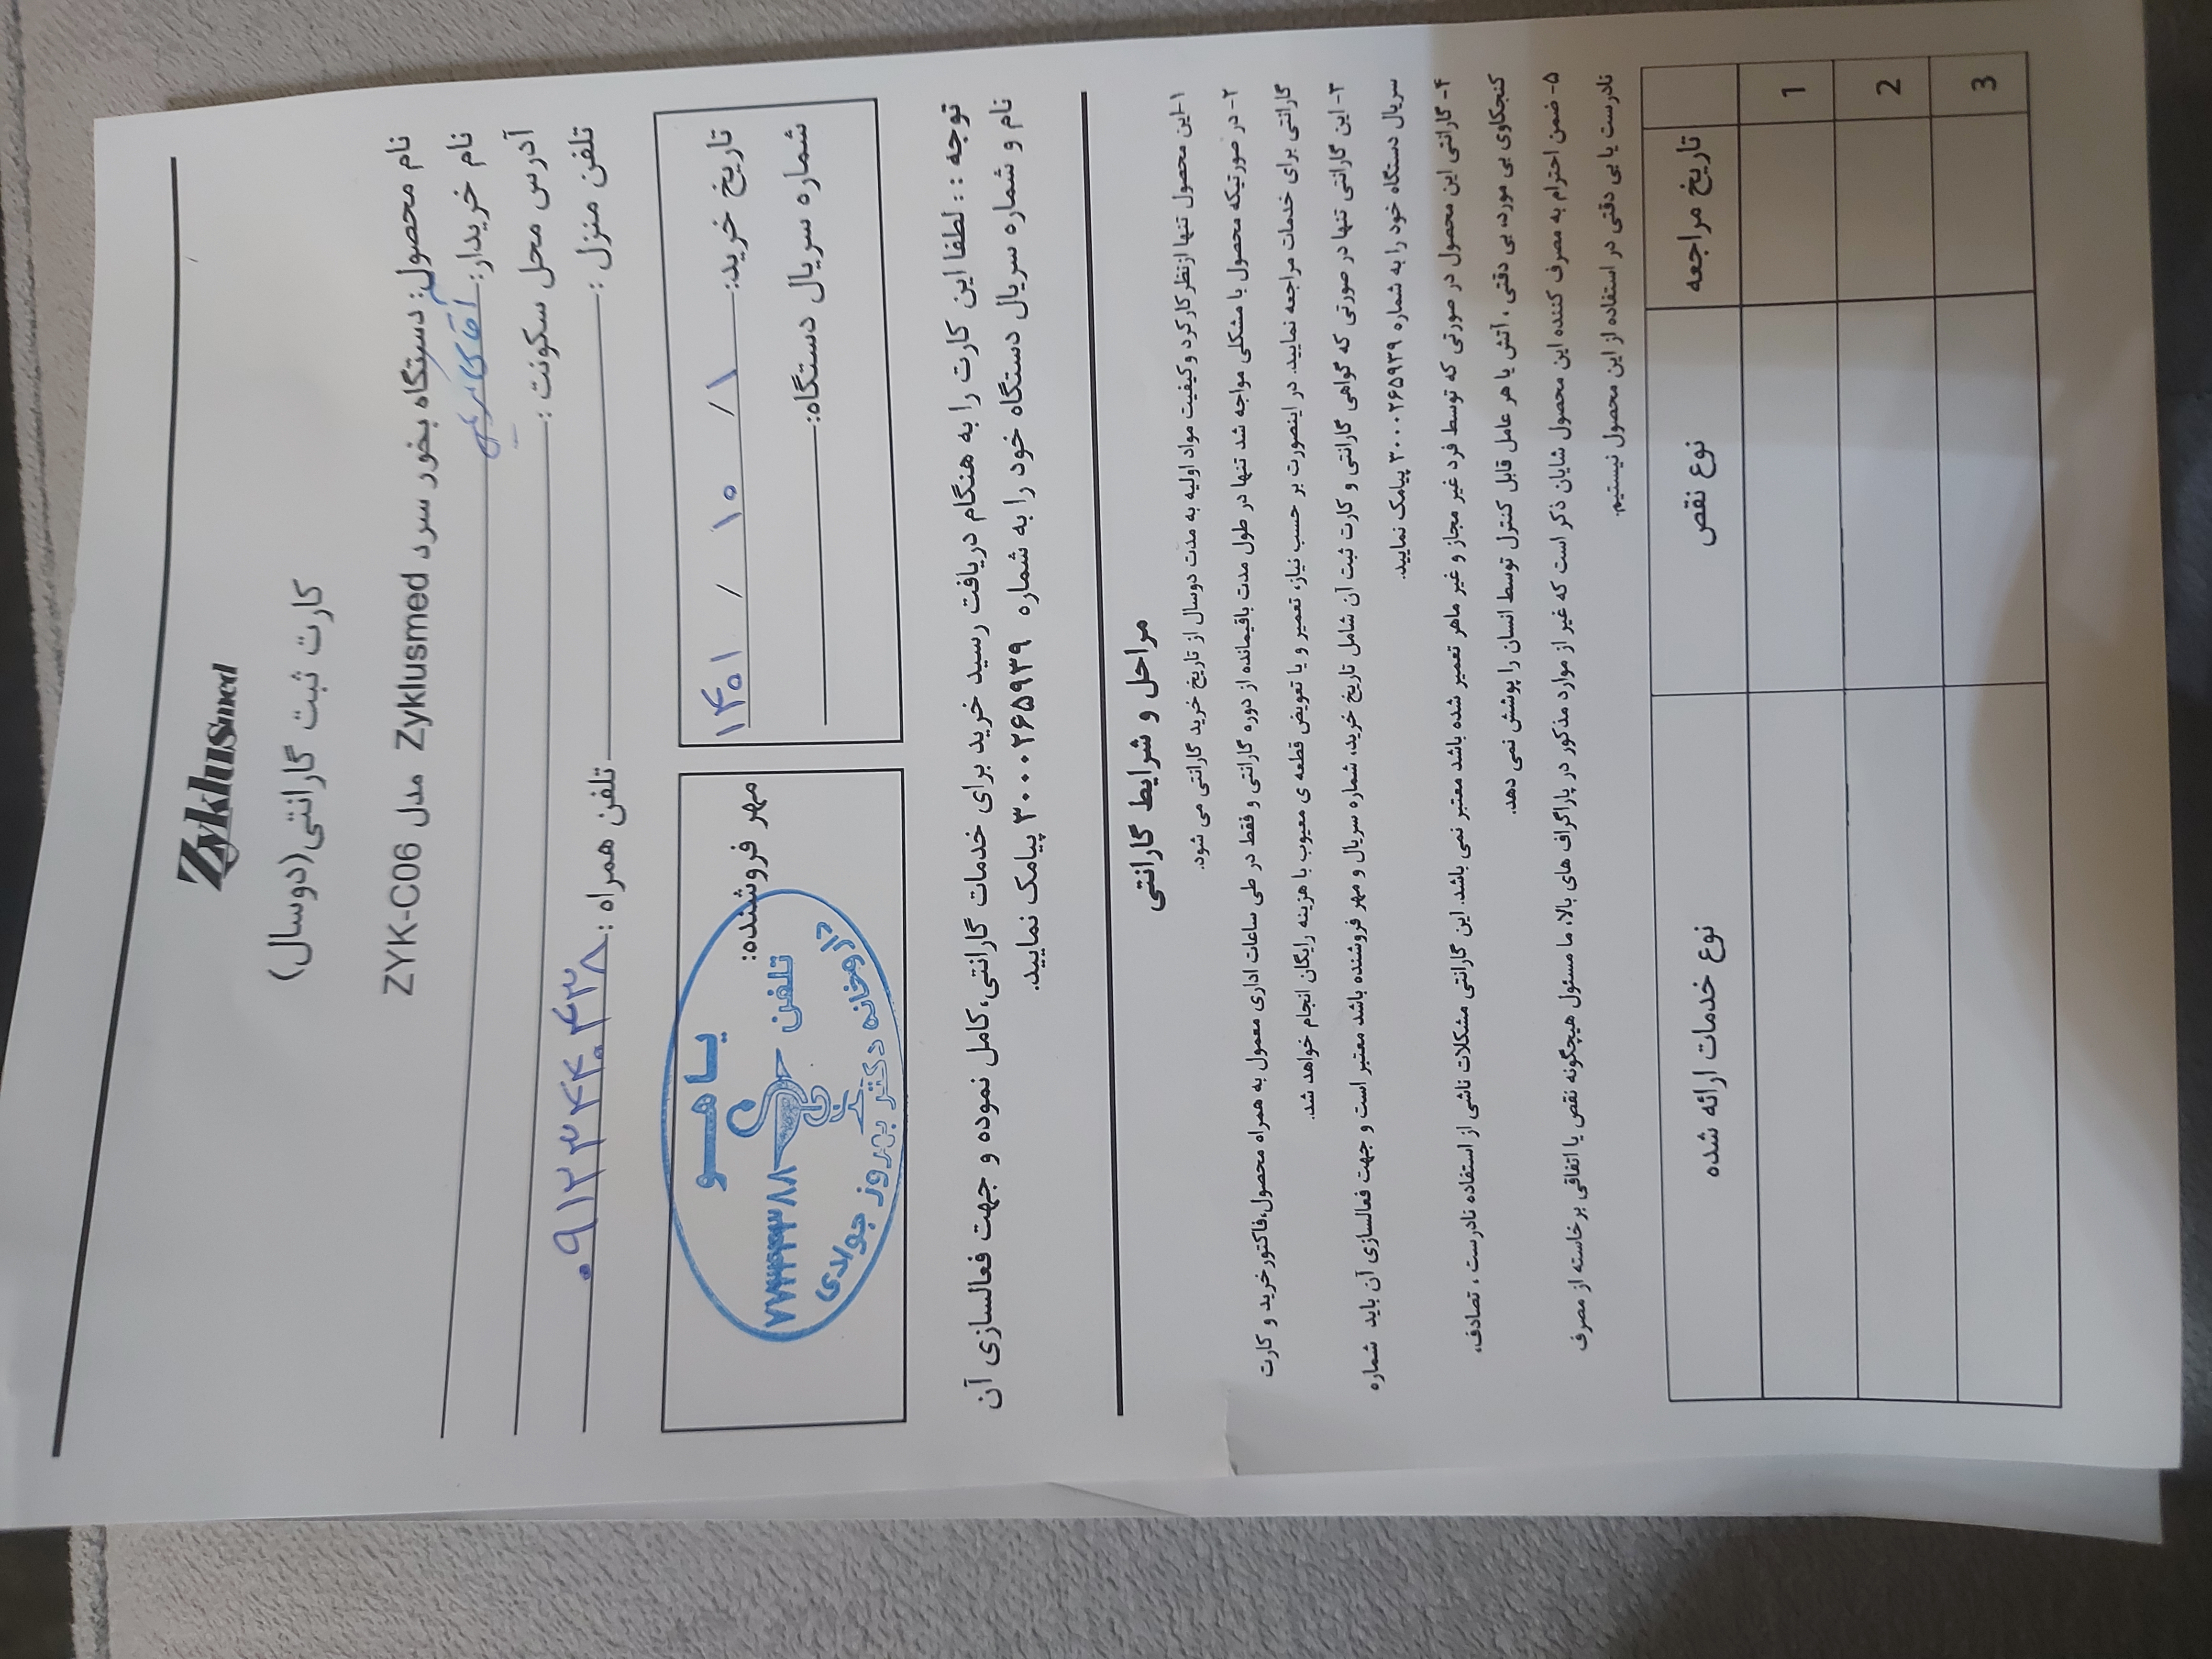 Zyklusmed
کارت ثبت گارانتی(دوسال)
نام محصول: دستگاه بخور سرد Zyklusmed مدل ZYK-C06
نام خریدار:
آدرس محل سکونت :
تلفن منزل : تلفن همراه : ۰۹۱۲۳۴۴۰۴۳۸
تاریخ خرید: ۱ / ۱۰ / ۱۴۰۱
شماره سریال دستگاه:
مهر فروشنده:
یا هو
تلفن
داروخانه دکتر بهروز جولادی
توجه : : لطفا این کارت را به هنگام دریافت رسید خرید برای خدمات گارانتی،کامل نموده و جهت فعالسازی آن
نام و شماره سریال دستگاه خود را به شماره ۳۰۰۰۲۶۵۹۳۹ پیامک نمایید.
مراحل و شرایط گارانتی
۱-این محصول تنها ازنظر کارکرد و کیفیت مواد اولیه به مدت دوسال از تاریخ خرید گارانتی می شود.
۲- در صورتیکه محصول با مشکلی مواجه شد تنها در طول مدت باقیمانده از دوره گارانتی و فقط در طی ساعات اداری معمول به همراه محصول،فاکتور خرید و کارت
گارانتی برای خدمات مراجعه نمایید. در اینصورت بر حسب نیاز، تعمیر و یا تعویض قطعه ی معیوب با هزینه رایگان انجام خواهد شد.
۳- این گارانتی تنها در صورتی که گواهی گارانتی و کارت ثبت آن شامل تاریخ خرید، شماره سریال و مهر فروشنده باشد معتبر است و جهت فعالسازی آن باید شماره
سریال دستگاه خود را به شماره ۳۰۰۰۲۶۵۹۳۹ پیامک نمایید.
۴- گارانتی این محصول در صورتی که توسط فرد غیر مجاز و غیر ماهر تعمیر شده باشد معتبر نمی باشد. این گارانتی مشکلات ناشی از استفاده نادرست ، تصادف،
کنجکاوی بی مورد، بی دقتی ، آتش یا هر عامل قابل کنترل توسط انسان را پوشش نمی دهد.
۵- ضمن احترام به مصرف کننده این محصول شایان ذکر است که غیر از موارد مذکور در پاراگراف های بالا، ما مسئول هیچگونه نقص یا اتفاقی برخاسته از مصرف
نادرست یا بی دقتی در استفاده از این محصول نیستیم.
تاریخ مراجعه نوع نقص نوع خدمات ارائه شده
1
2
3